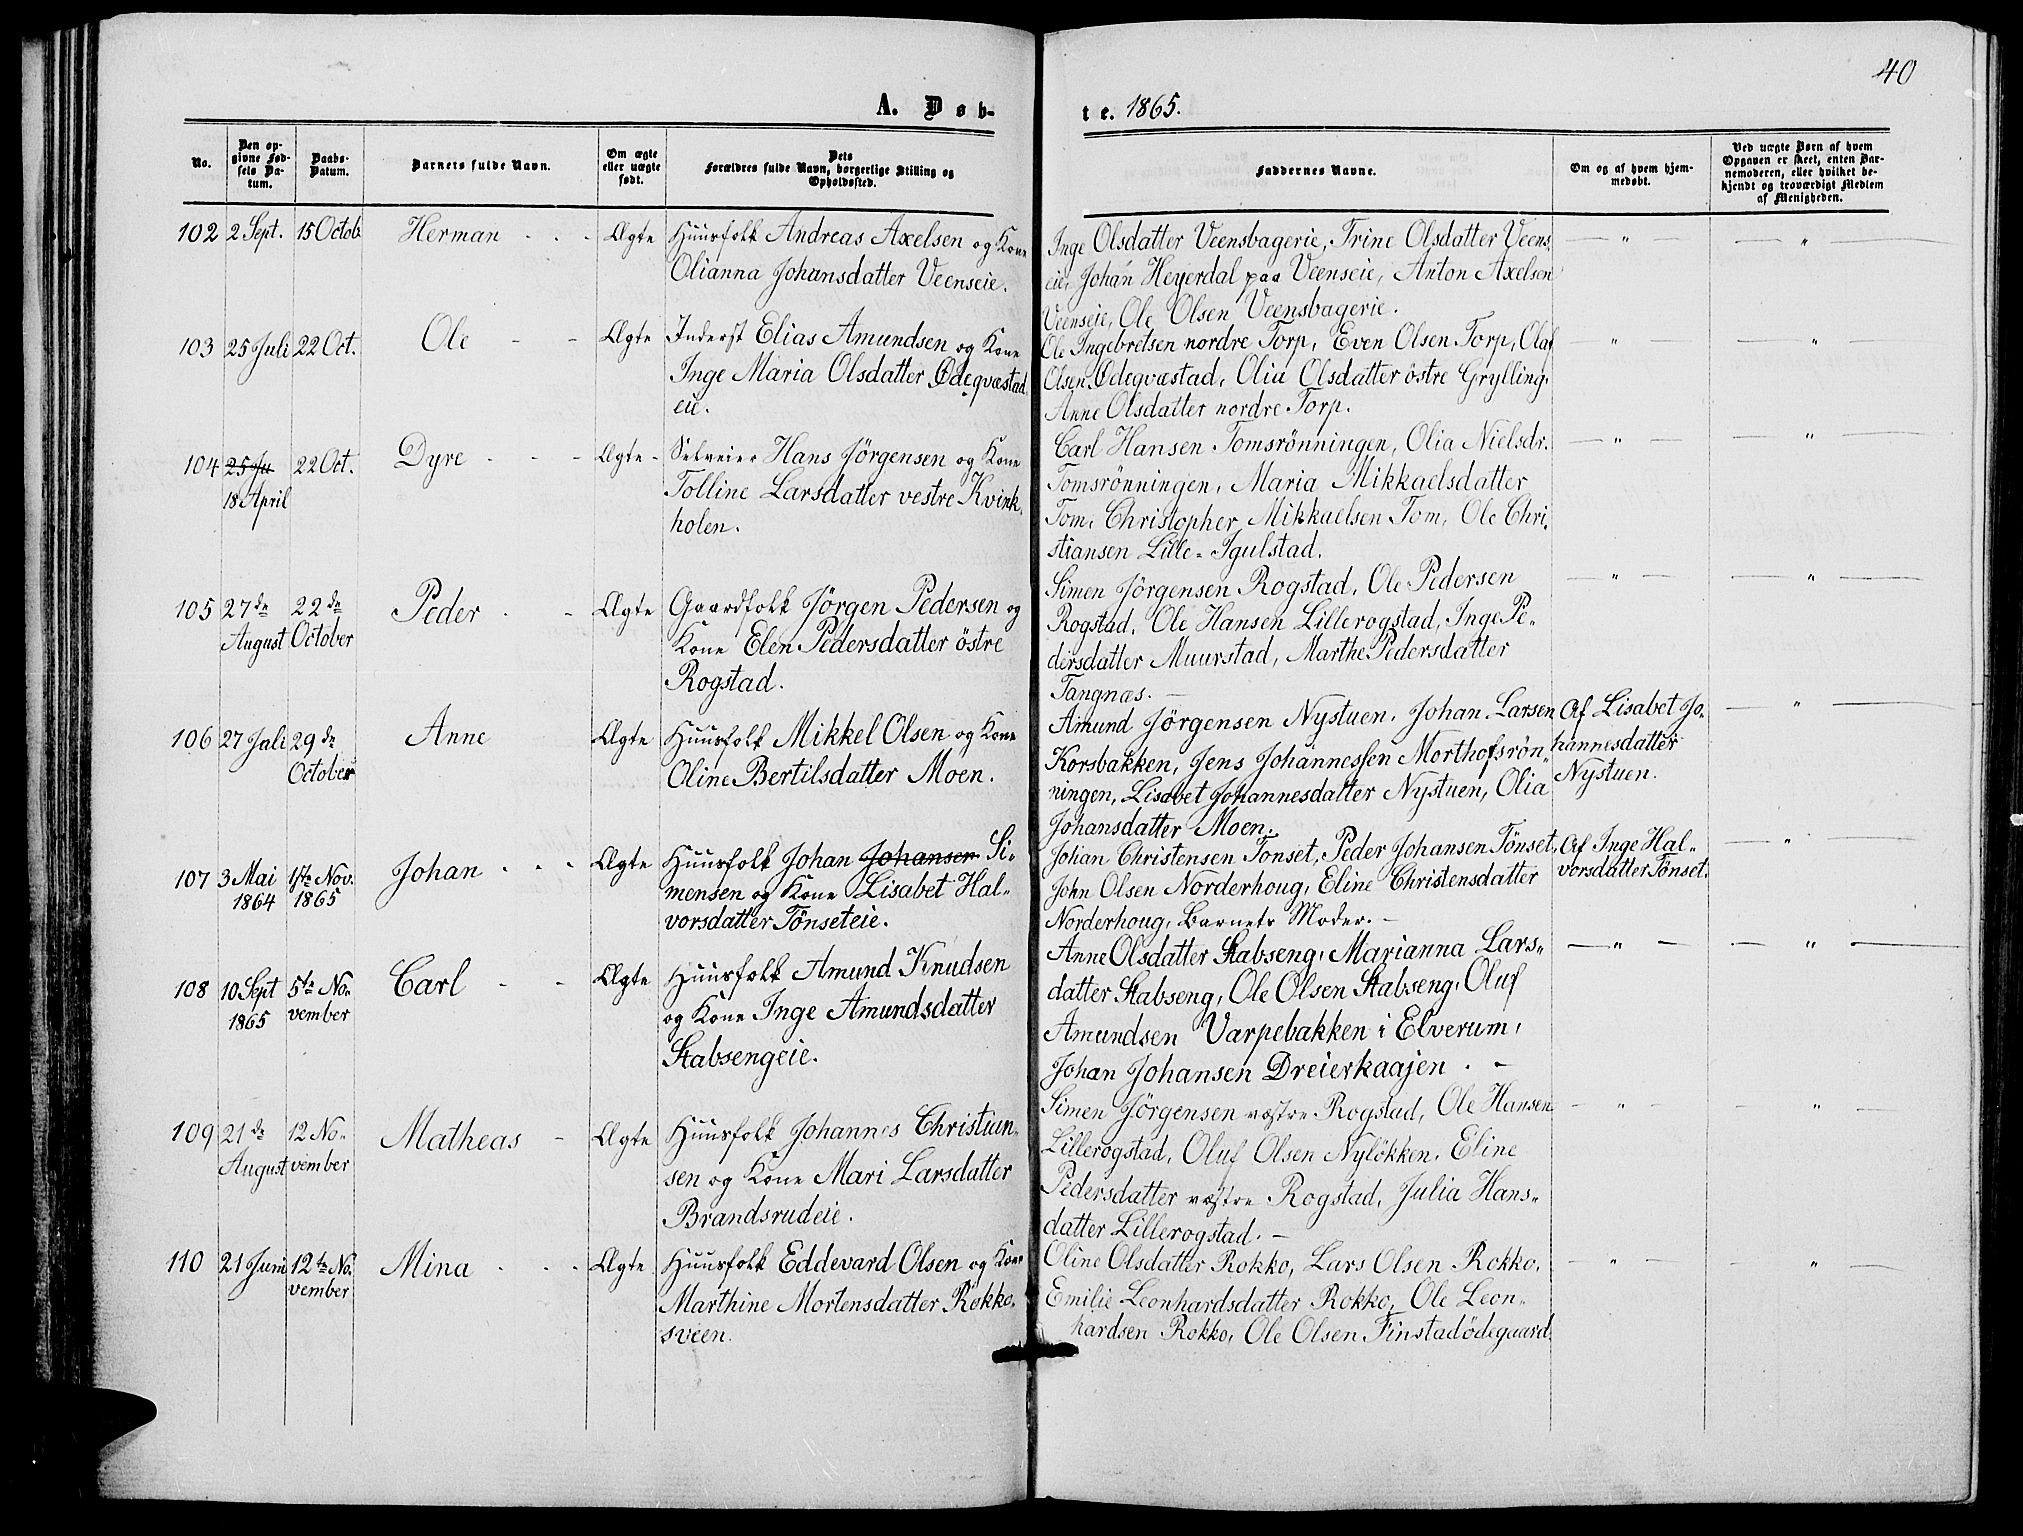 40
A. Døb-
te. 1865.
No.
Den op-
givne Fød-
sels Da-
tum.
Daabs-
Datum.
Barnets fulde Navn.
Om ægte
eller uægte
født.
Dets
Forældres fulde Navn, borgerlige Stilling og
Opholdssted.
Faddernes Navne.
Om og af hvem hjem-
medøbt.
Ved uægte Børn af hvem
Opgaven er skeet, enten Bar-
nemoderen, eller hvilket be-
kjendt og troværdigt Medlem
af Menigheden.
102 2 Sept. 15 Octob. Herman - - - Ægte Huusfolk Andreas Axelsen og Kone
Olianna Johansdatter Veenseie.
Inge Olsdatter Veensbagerie, Trine Olsdatter Veens- — " — — " —
eie, Johan Heyerdal paa Veenseie, Anton Axelsen
Veenseie, Ole Olsen Veensbagerie.
103 25 Juli 22 Oct. Ole - - Ægte Inderst Elias Amundsen og Kone
Inge Maria Olsdatter Ødeqvæstad-
eie.
Ole Ingebretsen nordre Torp, Even Olsen Torp, Olaf — " — — " —
Olsen Ødeqvæstad, Olia Olsdatter östre Grylling,
Anne Olsdatter nordre Torp.
104 25 Ju 22 Oct. Dyre - - - Ægte - Selveier Hans Jörgensen og Kone
18 April Tolline Larsdatter vestre Kvink-
holen.
Carl Hansen Tomsrönningen, Olia Nielsdr. — " — — " —
Tomsrönningen, Maria Mikkaelsdatter
Tom, Christopher Mikkaelsen Tom, Ole Chri-
stiansen Lille-Igulstad.
105 27de 22de Peder - - Ægte Gaardfolk Jörgen Pedersen og
August October Kone Elen Pedersdatter östre
Rogstad.
Simen Jörgensen Rogstad, Ole Pedersen — " — — " —
Rogstad, Ole Hansen Lillerogstad, Inge Pe-
dersdatter Muurstad, Marthe Pedersdatter
Tangnæs. —
106 27 Juli 29de Anne Ægte Huusfolk Mikkel Olsen og Kone
October Oline Bertilsdatter Moen.
Amund Jörgensen Nystuen, Johan Larsen Af Lisabet Jo- — " —
Korsbakken, Jens Johannessen Morthofsrön- hannesdatter
ningen, Lisabet Johannesdatter Nystuen, Olia Nystuen.
Johansdatter Moen.
107 3 Mai 1ste Nov. Johan - - - Ægte Huusfolk Johan Johansen Si-
1864 1865 mensen og Kone Lisabet Hal-
vorsdatter Tönseteie.
Johan Christensen Tonset, Peder Johansen Tönset, Af Inge Hal- — " —
John Olsen Norderhoug, Eline Christensdatter vorsdatter Tönset.
Norderhoug, Barnets Moder. -
108 10 Sept 5te No- Carl - - Ægte Huusfolk Amund Knudsen
1865 vember og Kone Inge Amundsdatter
Stabsengeie.
Anne Olsdatter Stabseng, Marianna Lars- — " — — " —
datter Stabseng, Ole Olsen Stabseng, Oluf
Amundsen Varpebakken i Elverum,
Johan Johansen Dreierkaajen. -
109 21de 12 No- Matheas - Ægte Huusfolk Johannes Christian-
August vember sen og Kone Mari Larsdatter
Brandsrudeie.
Simen Jörgensen vestre Rogstad, Ole Hansen — " — — " —
Lillerogstad, Oluf Olsen Nylökken, Eline
Pedersdatter vestre Rogstad, Julia Hans-
datter Lillerogstad. -
110 21 Juni 12te No- Mina - - - Ægte Huusfolk Eddevard Olsen og Kone
vember Marthine Mortensdatter Rokko-
sveen.
Oline Olsdatter Rokko, Lars Olsen Rokko, — " — — " —
Emilie Leonhardsdatter Rokko, Ole Leon-
hardsen Rokko, Ole Olsen Finstadödegaard.